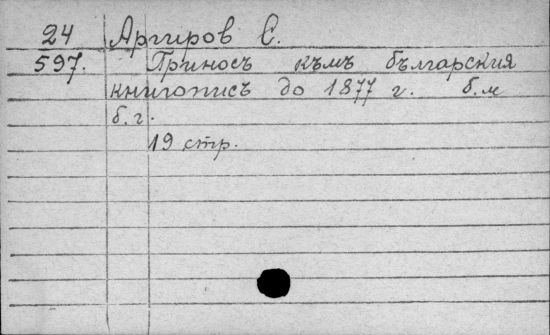 24 Аргиров С.
597. Приносъ къмъ българския
книгописъ до 1877 г. б.м
б.г.
19 стр.